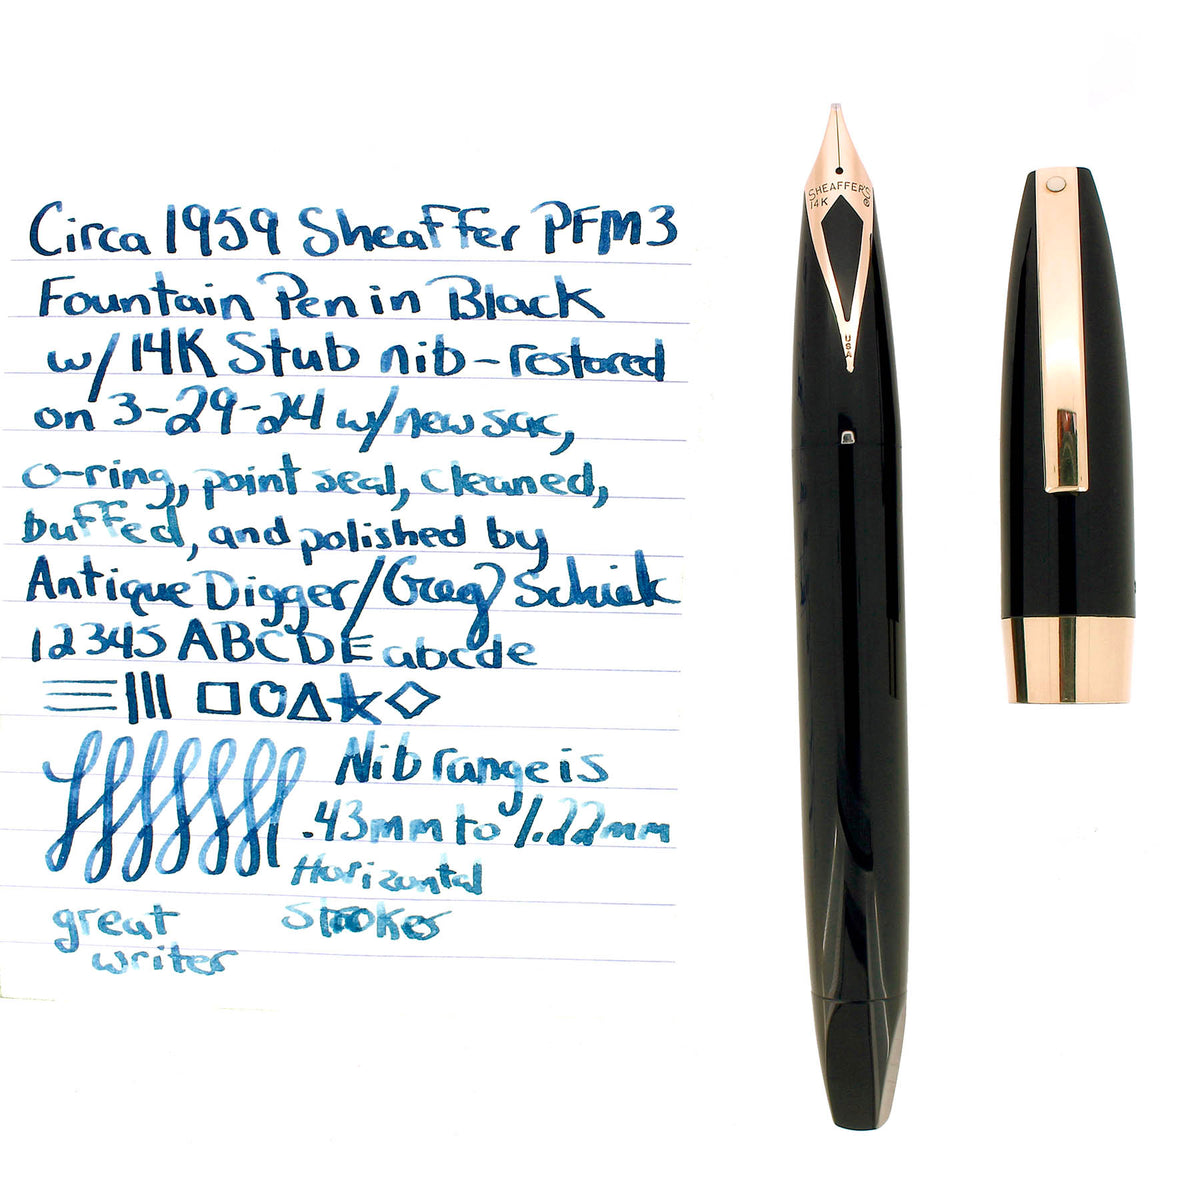 Circa 1959 Sheaffer PFM3
Fountain Pen in Black
w/ 14K Stub nib - restored
on 3-29-24 w/ new sac,
o-ring, point seal, cleaned,
buffed, and polished by
Antique Digger/Greg Schiek
12345 ABCDE abcde
Nib range is
.43mm to 1.22mm
Horizontal
strokes
great
writer
SHEAFFER'S
14K ®
USA